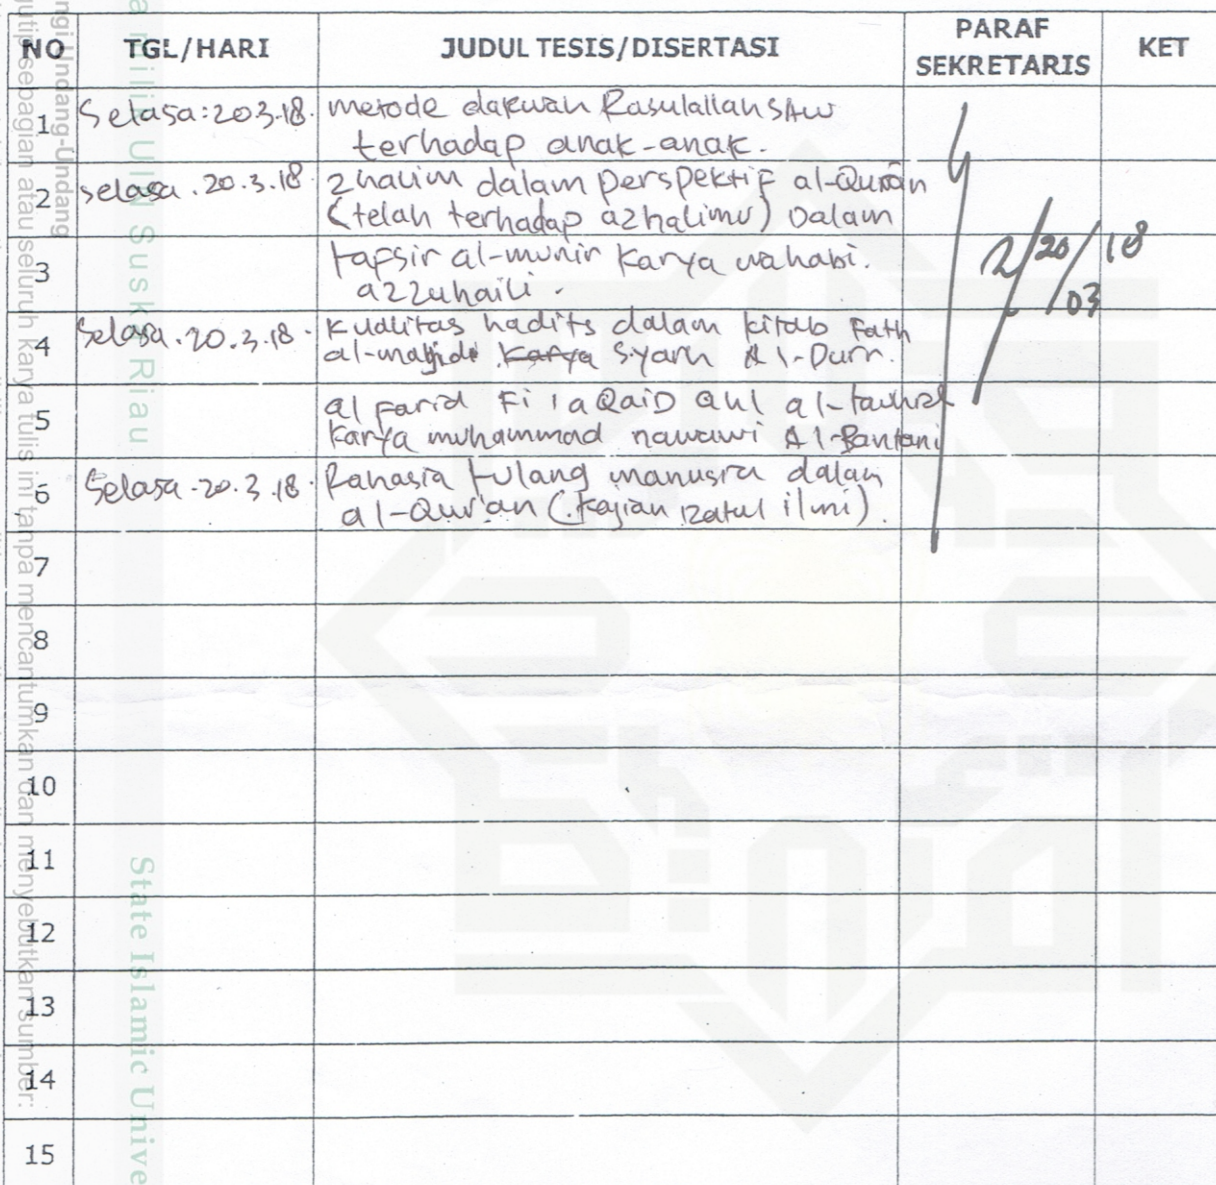 NO TGL/HARI JUDUL TESIS/DISERTASI PARAF SEKRETARIS KET
1 Selasa: 20.3.18. metode dakwah Rasulallah SAW
terhadap anak-anak.
2 selasa. 20.3.18 zhalim dalam perspektif al-Qurân
(telah terhadap azhalimu) Dalam
3 tapsir al-munir Karya wahabi.
azzuhaili.
4 Selasa. 20.3.18. Kualitas hadits dalam kitab Fath
al-majide Karya Syarh Al-Durr.
5 al farid Fi 'aQaiD ahl al-tauhid
Karya muhammad nawawi Al-Bantani
6 Selasa-20.3.18. Rahasia tulang manusia dalam
al-Qur'an (Kajian izatul ilmi).
20/03/18
7
8
9
10
11
12
13
14
15
ngi Undang-Undang
gutip sebagian atau seluruh karya tulis ini tanpa mencantumkan dan menyebutkan sumber:
a milik UIN Suska Riau
State Islamic Unive